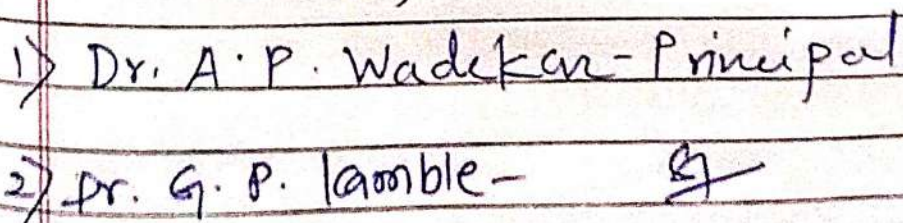 1) Dr. A. P. Wadekar - Principal
2) Dr. G. P. Kamble -